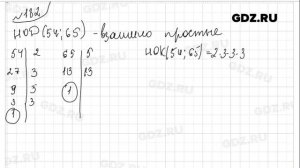 №182
НОД(54;65) - взаимно простые
54 | 2 65 | 5 НОК(54;65)=2·3·3·3
27 | 3 13 | 13
9 | 3 1
3 | 3
1
GDZ.RU